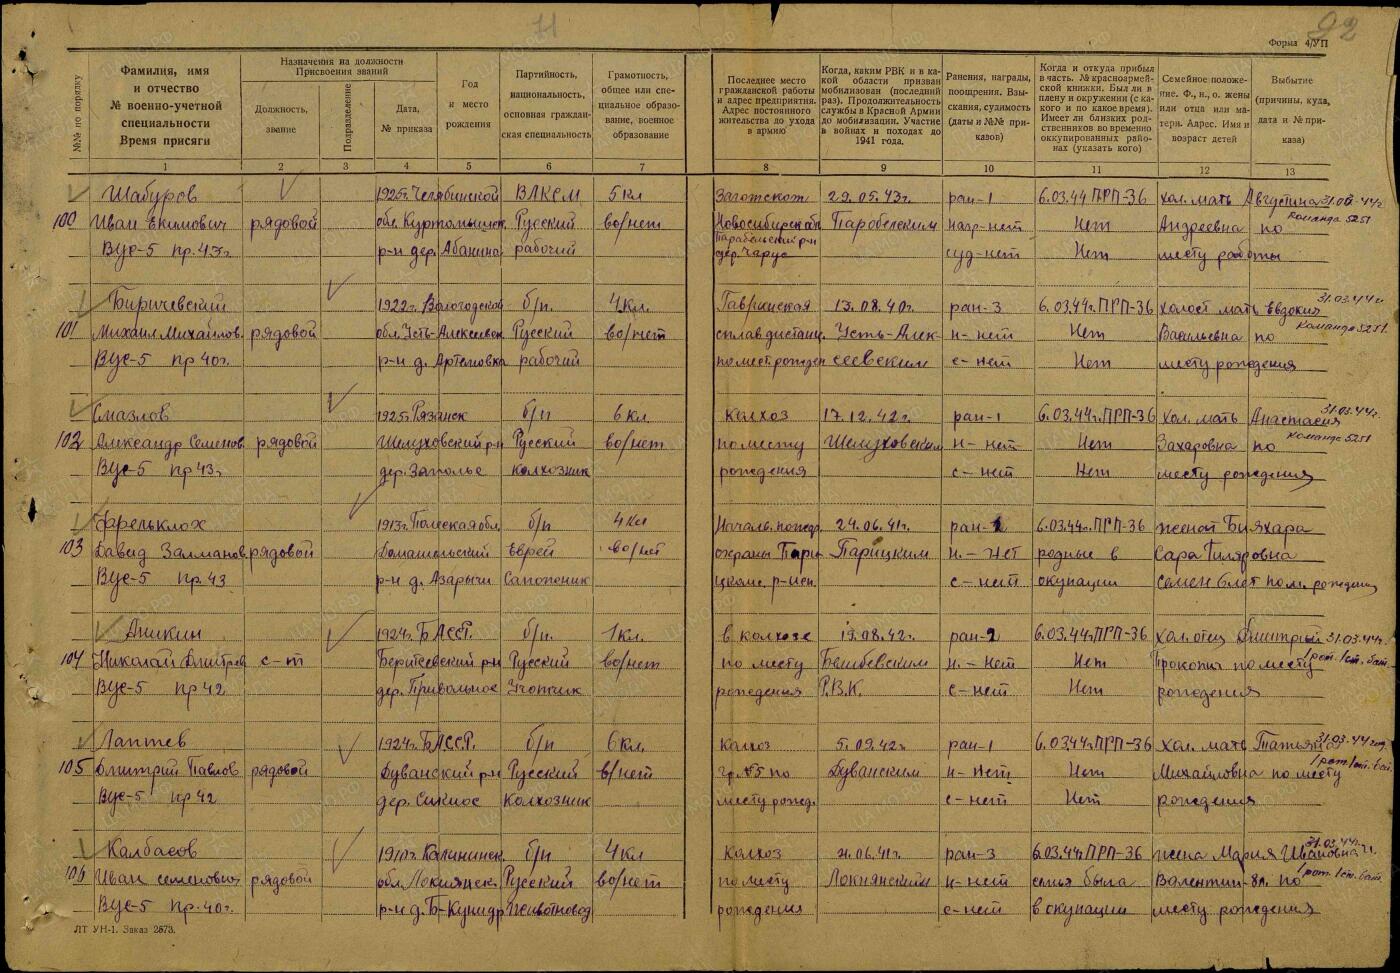 71
92
Форма 4/УП
№№ по порядку
Фамилия, имя и отчество № военно-учетной специальности Время присяги
Назначения на должности Присвоения званий
Должность, звание
Подразделение
Дата, № приказа
Год и место рождения
Партийность, национальность, основная гражданская специальность
Грамотность, общее или специальное образование, военное образование
Последнее место гражданской работы и адрес предприятия. Адрес постоянного жительства до ухода в армию
Когда, каким РВК и в какой области призван мобилизован (последний раз). Продолжительность службы в Красной Армии до мобилизации. Участие в войнах и походах до 1941 года.
Ранения, награды, поощрения. Взыскания, судимость (даты и №№ приказов)
Когда и откуда прибыл в часть. № красноармейской книжки. Был ли в плену и окружении (с какого и по какое время). Имеет ли близких родственников во временно оккупированных районах (указать кого)
Семейное положение. Ф., и., о. жены или отца или матери. Адрес. Имя и возраст детей
Выбытие (причины, куда, дата и № приказа)
1 2 3 4 5 6 7 8 9 10 11 12 13
Шабуров 1925г. Челябинской ВЛКСМ 5 кл Заготскот 29.05.43г. ран-1 6.03.44 ПРП-36 хол. мать Августина 31.03.44г.
100 Иван Екимович рядовой обл. Русский во/нет Новосибирск обл Паробелским нагр-нет Нет Андреевна по команда 5251
Вус-5 пр. 43г. р-н дер. Абанина рабочий Парабельский р-н дер. Чарус суд-нет Нет месту работы
Биричевский 1922г. Вологодской б/п. 4 кл. 13.08.40г. ран-3 6.03.44г. ПРП-36 холост мать Евдокия 31.03.44г
101 Михаил Михайлов. рядовой обл. Усть-Алексеевск Русский во/нет сплав дистанц. Усть-Алек- н-нет Нет Васильевна по команда 5251
Вус-5 пр 40г. р-н д. Артемовка рабочий по мест. рожден сеевским с-нет Нет месту рождения
Смазлов 1925г Рязанск б/п 6 кл. колхоз 17.12.42г. ран-1 6.03.44г. ПРП-36 хол. мать Анастасия 31.03.44г.
102 Александр Семенов. рядовой Шелуховский р-н Русский во/нет по месту Шелуховским н-нет Нет Захаровна по команда 5251
Вус-5 пр 43г. дер. Заполье колхозник рождения с-нет Нет месту рождения
1913г. Полеская обл. б/п 4 кл Началь. пожар. 24.06.41г. ран-2 6.03.44г. ПРП-36 женат
103 Давид Залманов. рядовой Домашельский Еврей во/нет охраны Парицким н.-нет родные в Сара
Вус-5 пр. 43 р-н д. Азарычи Сапожник с-нет окупации Семен 6 лет по м. рождения
Аникин 1924г. БАССР. б/п. 1 кл. в колхозе 19.08.42г. ран-2 6.03.44г ПРП-36 хол. отец Дмитрий 31.03.44г.
104 Николай Дмитрев с-т р-н Русский во/нет по месту н.-нет Нет Прокопич по месту 1 рот. 1 ст. бат.
Вус-5 пр 42 дер. Привольное рождения Р.В.К. с-нет Нет рождения
Лаптев 1924г. БАССР. б/п 6 кл. колхоз 5.09.42г. ран-1 6.03.44г ПРП-36 хол. мать Татьяна 31.03.44 год
105 Дмитрий Павлов рядовой Дуванский р-н Русский в/нет гр. №5 по Дуванским н-нет Нет Михайловна по месту 1 рот. 1 ст. бат.
Вус-5 пр 42 дер. Сикиос Колхозник месту рожд. с-нет Нет рождения
Калбасов 1910г. Калининск. б/п 4 кл колхоз ран-3 6.03.44г. ПРП-36 жена Мария Ивановна 31.03.44г.
106 Иван Семенович рядовой обл. Локнянск. Русский во/нет по месту Локнянским н-нет семья была Валентин-8л. по 1 рот. 1 ст. бат.
Вус-5 пр. 40г. р-н д. животновод рождения с-нет в окупации месту рождения
ЛТ УН-1. Заказ 2573.